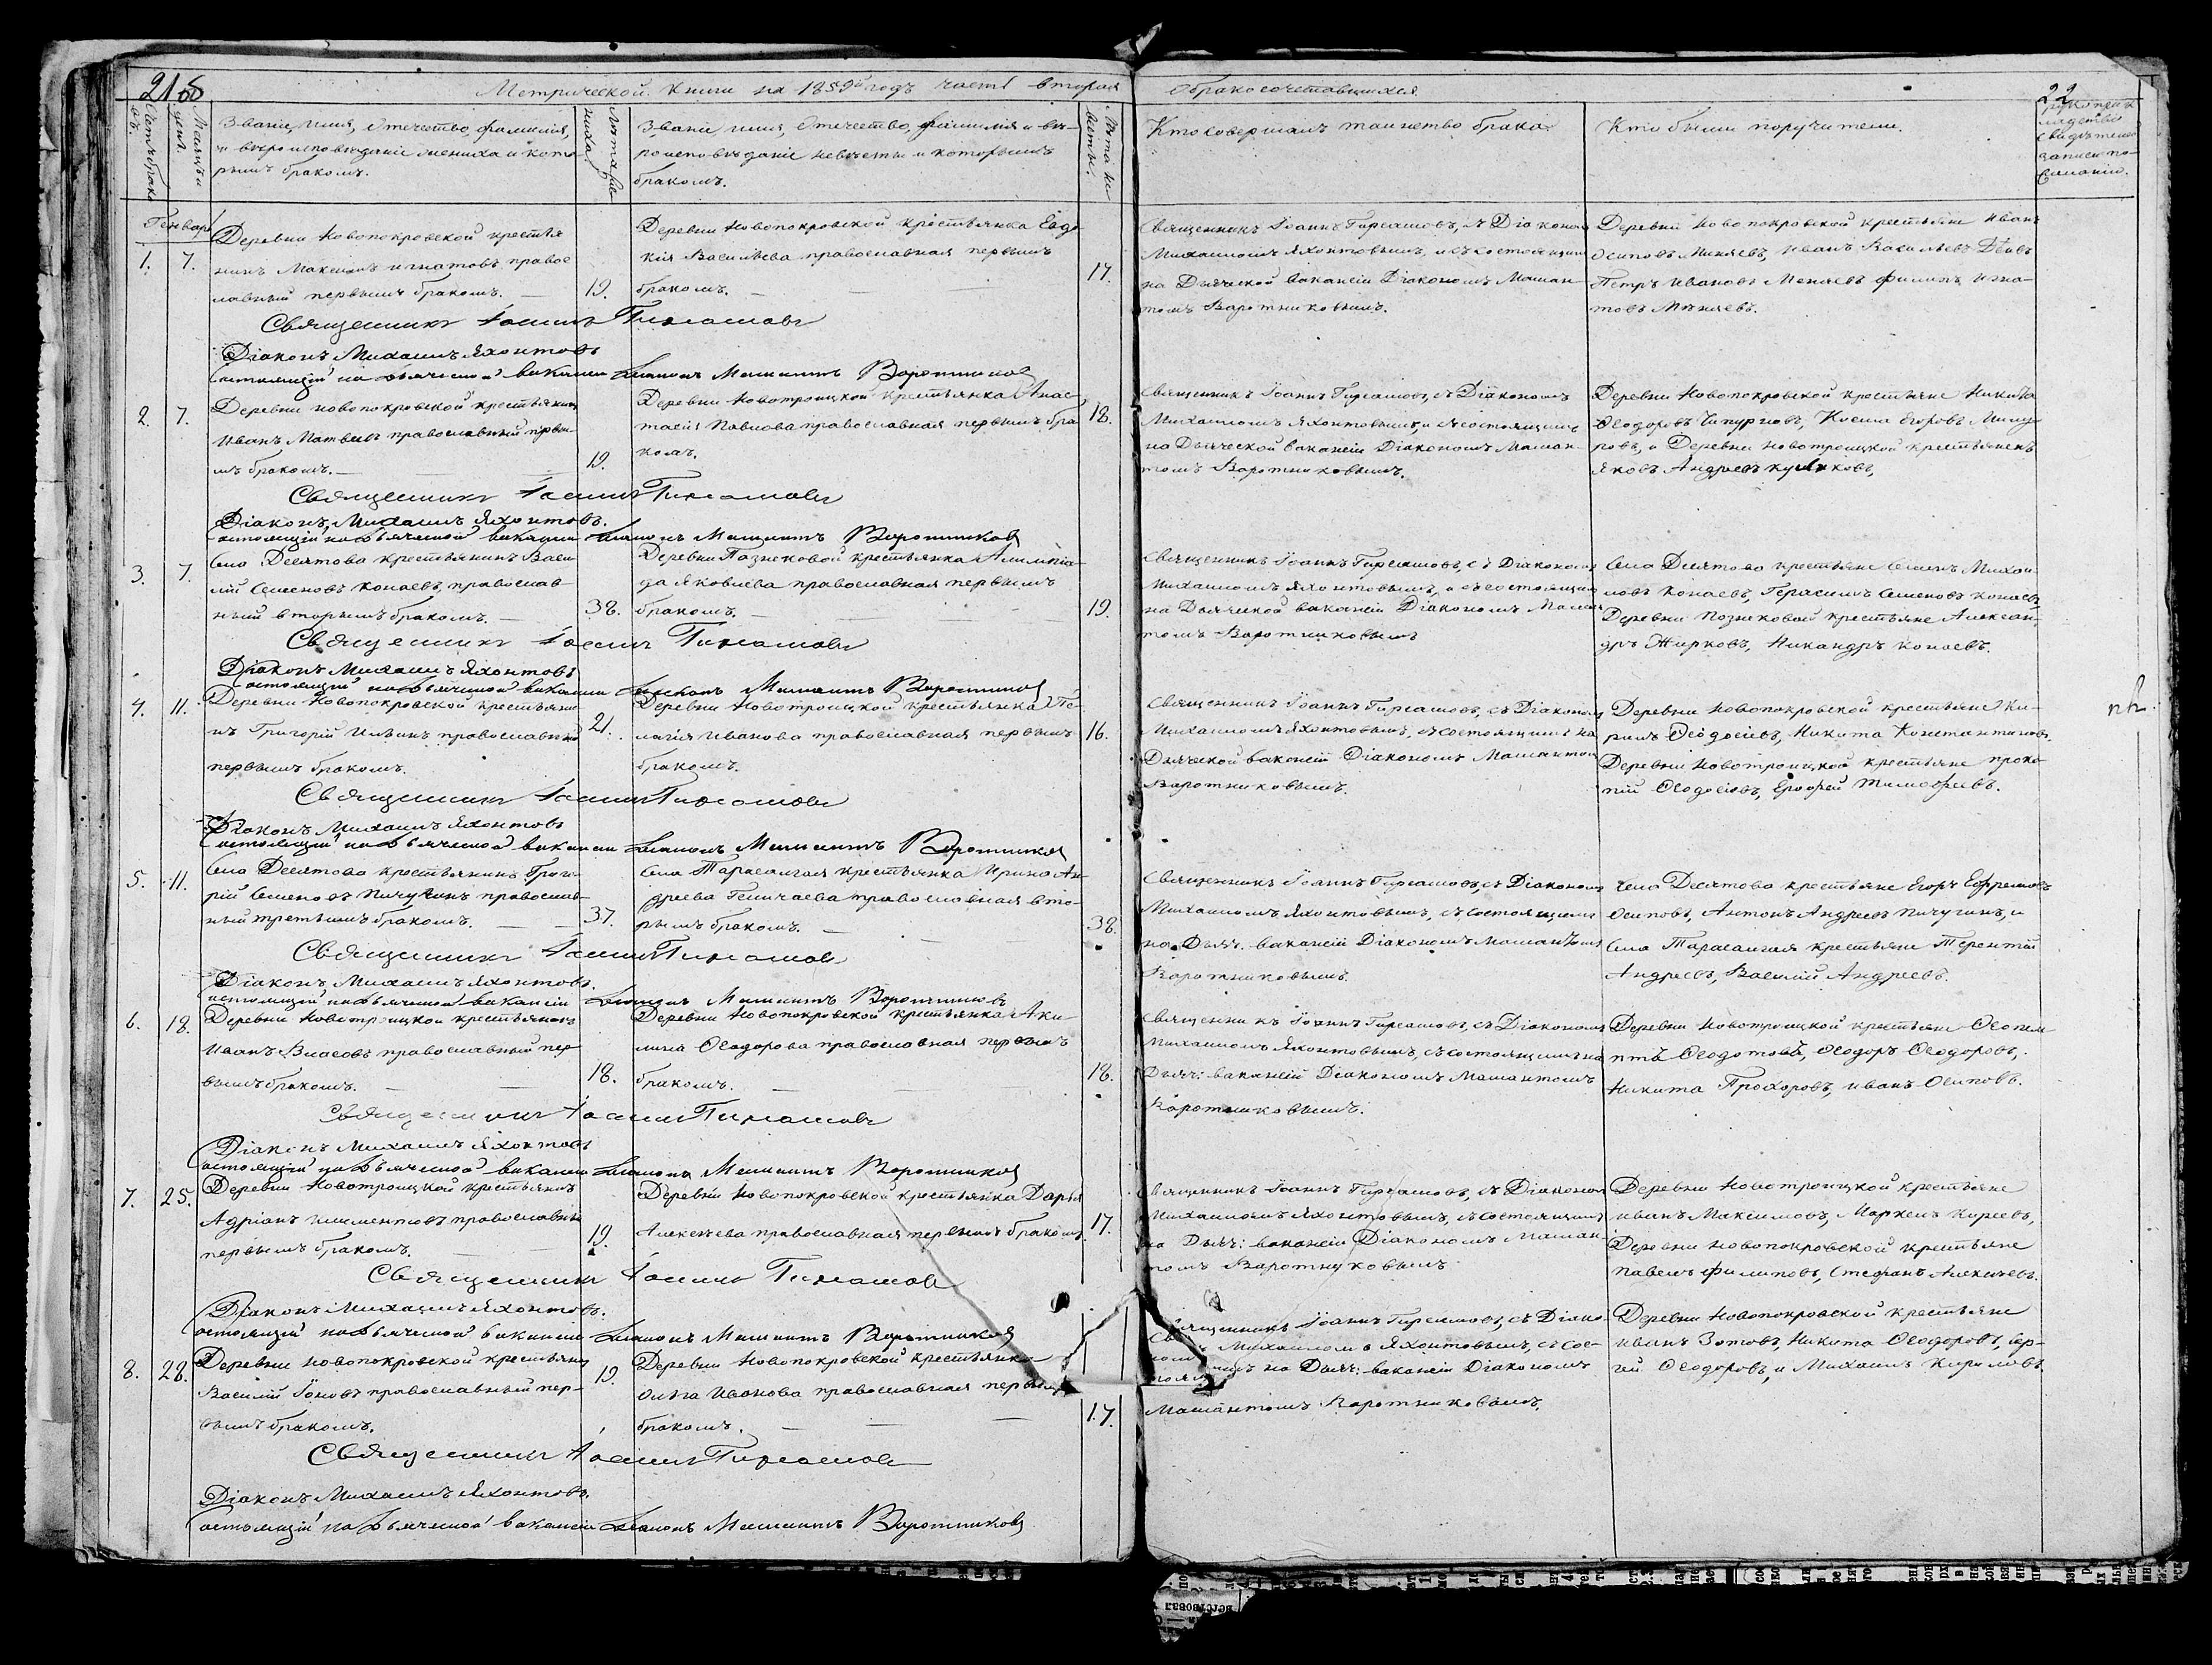 Метрической Книги на 1859й годъ часть вторая
о бракосочетавшихся.
22
Счетъ браковъ.
Мѣсяцъ и день.
Званіе, имя, Отечество, фамилія,
и вѣроисповѣданіе жениха и кото-
рымъ бракомъ.
Лѣта жениха.
Званіе, имя, Отечество, фамилія и вѣ-
роисповѣданіе невѣсты и которымъ
бракомъ.
Лѣта невѣсты.
Кто совершалъ таинство брака.
Кто были поручители.
свидѣтелей
записи по
Генварь
1. 7.
Деревни Новопокровской крестья
нинъ Максимъ Игнатовъ правос
лавный первымъ бракомъ.
19.
Деревни Новопокровской крестьянка Евдо
кія Васильева православная первымъ
бракомъ.
17.
Священникъ Іоаннъ Гиргамовъ, съ Діакономъ
Михаиломъ Яхонтовымъ, и съ состоящимъ
на Дьяческой вакансіи Діакономъ Маман-
томъ Воротниковымъ.
Деревни Новопокровской крестьяне Иванъ
Осиповъ Миняевъ, Иванъ Васильевъ
Петръ Ивановъ Меняевъ Филипъ Игна-
товъ Мѣняевъ.
Священникъ Іоаннъ Гиргамовъ
Діаконъ Михаилъ Яхонтовъ
Состоящій на Дьяческой вакансіи Діаконъ Мамантъ Воротниковъ
2. 7.
Деревни Новопокровской крестьянинъ
Иванъ Матвѣевъ православный первы-
мъ бракомъ.
19.
Деревни Новотроицкой крестьянка Анас
тасія Павлова православная первымъ бра
комъ.
18.
Священникъ Іоаннъ Гиргамовъ, съ Діакономъ
Михаиломъ Яхонтовымъ, и съ состоящимъ
на Дьяческой вакансіи Діакономъ Маман-
томъ Воротниковымъ.
Деревни Новопокровской крестьяне Никита
Ѳеодоровъ Козма Егоровъ
ровъ, и Деревни Новотроицкой крестьянинъ
Яковъ Андреевъ
Священникъ Іоаннъ Гиргамовъ
Діаконъ, Михаилъ Яхонтовъ.
Состоящій на Дьяческой вакансіи Діаконъ Мамантъ Воротниковъ
3. 7.
Села Десятова крестьянинъ Васи
лій Семеновъ Копаевъ, православ-
ный вторымъ бракомъ.
38.
Деревни Позняковой крестьянка Алимпіа-
да Яковлева православная первымъ
бракомъ.
19.
Священникъ Іоаннъ Гиргамовъ, съ Діакономъ
Михаиломъ Яхонтовымъ, и съ состоящимъ
на Дьяческой вакансіи Діакономъ Маман
томъ Воротниковымъ
Села Десятова крестьяне Семенъ Михаи-
ловъ Копаевъ, Герасимъ Семеновъ Копаевъ,
Деревни Позняковой крестьяне Алексан-
дръ Жирковъ, Никандръ Копаевъ.
Священникъ Іоаннъ Гиргамовъ
Діаконъ Михаилъ Яхонтовъ
Состоящій на Дьяческой вакансіи Діаконъ Мамантъ Воротниковъ
4. 11.
Деревни Новопокровской крестьяни-
нъ Григорій Ильинъ православный
первымъ бракомъ.
21.
Деревни Новотроицкой крестьянка Пе-
лагія Иванова православная первымъ
бракомъ.
16.
Священникъ Іоаннъ Гиргамовъ, съ Діакономъ
Михаиломъ Яхонтовымъ, съ состоящимъ на
Дьяческой вакансіи Діакономъ Мамантомъ
Воротниковымъ.
Деревни Новопокровской крестьяне Ки-
рилъ Ѳеодосіевъ, Никита Константиновъ,
Деревни Новотроицкой крестьяне Проко-
пій Ѳеодосіевъ, Ерофей Тимофеевъ.
Священникъ Іоаннъ Гиргамовъ
Діаконъ Михаилъ Яхонтовъ
Состоящій на Дьяческой вакансіи Діаконъ Мамантъ Воротниковъ
5. 11.
Села Десятова крестьянинъ Григо-
рій Семеновъ Пичугинъ православ-
ный третьимъ бракомъ.
37.
Села крестьянка Ирина Ан-
дреева православная вто-
рымъ бракомъ.
38.
Священникъ Іоаннъ Гиргамовъ, съ Діакономъ
Михаиломъ Яхонтовымъ, съ состоящимъ
на Дьяч. вакансіи Діакономъ Мамантомъ
Воротниковымъ.
Села Десятова крестьяне Егоръ Ефремовъ
Осиповъ, Антонъ Андреевъ Пичугинъ, и
Села крестьяне Терентій
Андреевъ, Василій Андреевъ.
Священникъ Іоаннъ Гиргамовъ
Діаконъ Михаилъ Яхонтовъ.
Состоящій на Дьяческой вакансіи Діаконъ Мамантъ Воротниковъ
6. 18.
Деревни Новотроицкой крестьянинъ
Иванъ Власовъ православный пер
вымъ бракомъ.
18.
Деревни Новопокровской крестьянка Аки-
лина Ѳеодорова православная первымъ
бракомъ.
18.
Священникъ Іоаннъ Гиргамовъ, съ Діакономъ
Михаиломъ Яхонтовымъ, съ состоящимъ на
Дьяч: вакансіи Діакономъ Мамантомъ
Воротниковымъ.
Деревни Новотроицкой крестьяне Ѳеопем-
птъ Ѳеодотовъ, Ѳеодоръ Ѳеодоровъ,
Никита Прохоровъ, Иванъ Осиповъ.
Священникъ Іоаннъ Гиргамовъ
Діаконъ Михаилъ Яхонтовъ
Состоящій на Дьяческой вакансіи Діаконъ Мамантъ Воротниковъ
7. 25.
Деревни Новотроицкой крестьянинъ
Адріанъ Климентовъ православный
первымъ бракомъ.
19.
Деревни Новопокровской крестьянка Дарья
Алексѣева православная первымъ бракомъ.
17.
Священникъ Іоаннъ Гиргамовъ, съ Діакономъ
Михаиломъ Яхонтовымъ, съ состоящимъ
на Дьяч: вакансіи Діакономъ Маман
томъ Воротниковымъ
Деревни Новотроицкой крестьяне
Иванъ Максимовъ, Маркелъ Киреевъ,
Деревни Новопокровской крестьяне
Павелъ Филиповъ, Стефанъ Алексѣевъ.
Священникъ Іоаннъ Гиргамовъ
Діаконъ Михаилъ Яхонтовъ.
Состоящій на Дьяческой вакансіи Діаконъ Мамантъ Воротниковъ
8. 28.
Деревни Новопокровской крестьянинъ
Василій Іоновъ православный пер-
вымъ бракомъ.
19.
Деревни Новопокровской крестьянка
Ольга Иванова православная первымъ
бракомъ.
17.
Священникъ Іоаннъ Гиргамовъ, съ Діако-
номъ Михаиломъ Яхонтовымъ, съ сос-
тоящимъ на Дьяч: вакансіи Діакономъ
Мамантомъ Воротниковымъ.
Деревни Новопокровской крестьяне
Иванъ Зотовъ, Никита Ѳеодоровъ, Сер-
гей Ѳеодоровъ, и Михаилъ Кириловъ
Священникъ Іоаннъ Гиргамовъ
Діаконъ Михаилъ Яхонтовъ.
Состоящій на Дьяческой вакансіи Діаконъ Мамантъ Воротниковъ